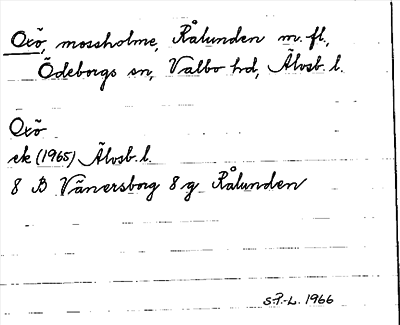 Oxö, mossholme, Rålunden m. fl.,
Ödeborgs sn, Valbo hd, Älvsb. l.
Oxö
ek (1965) Älvsb. l.
8 B Vänersborg 8 g Rålunden
S.P.-L. 1966